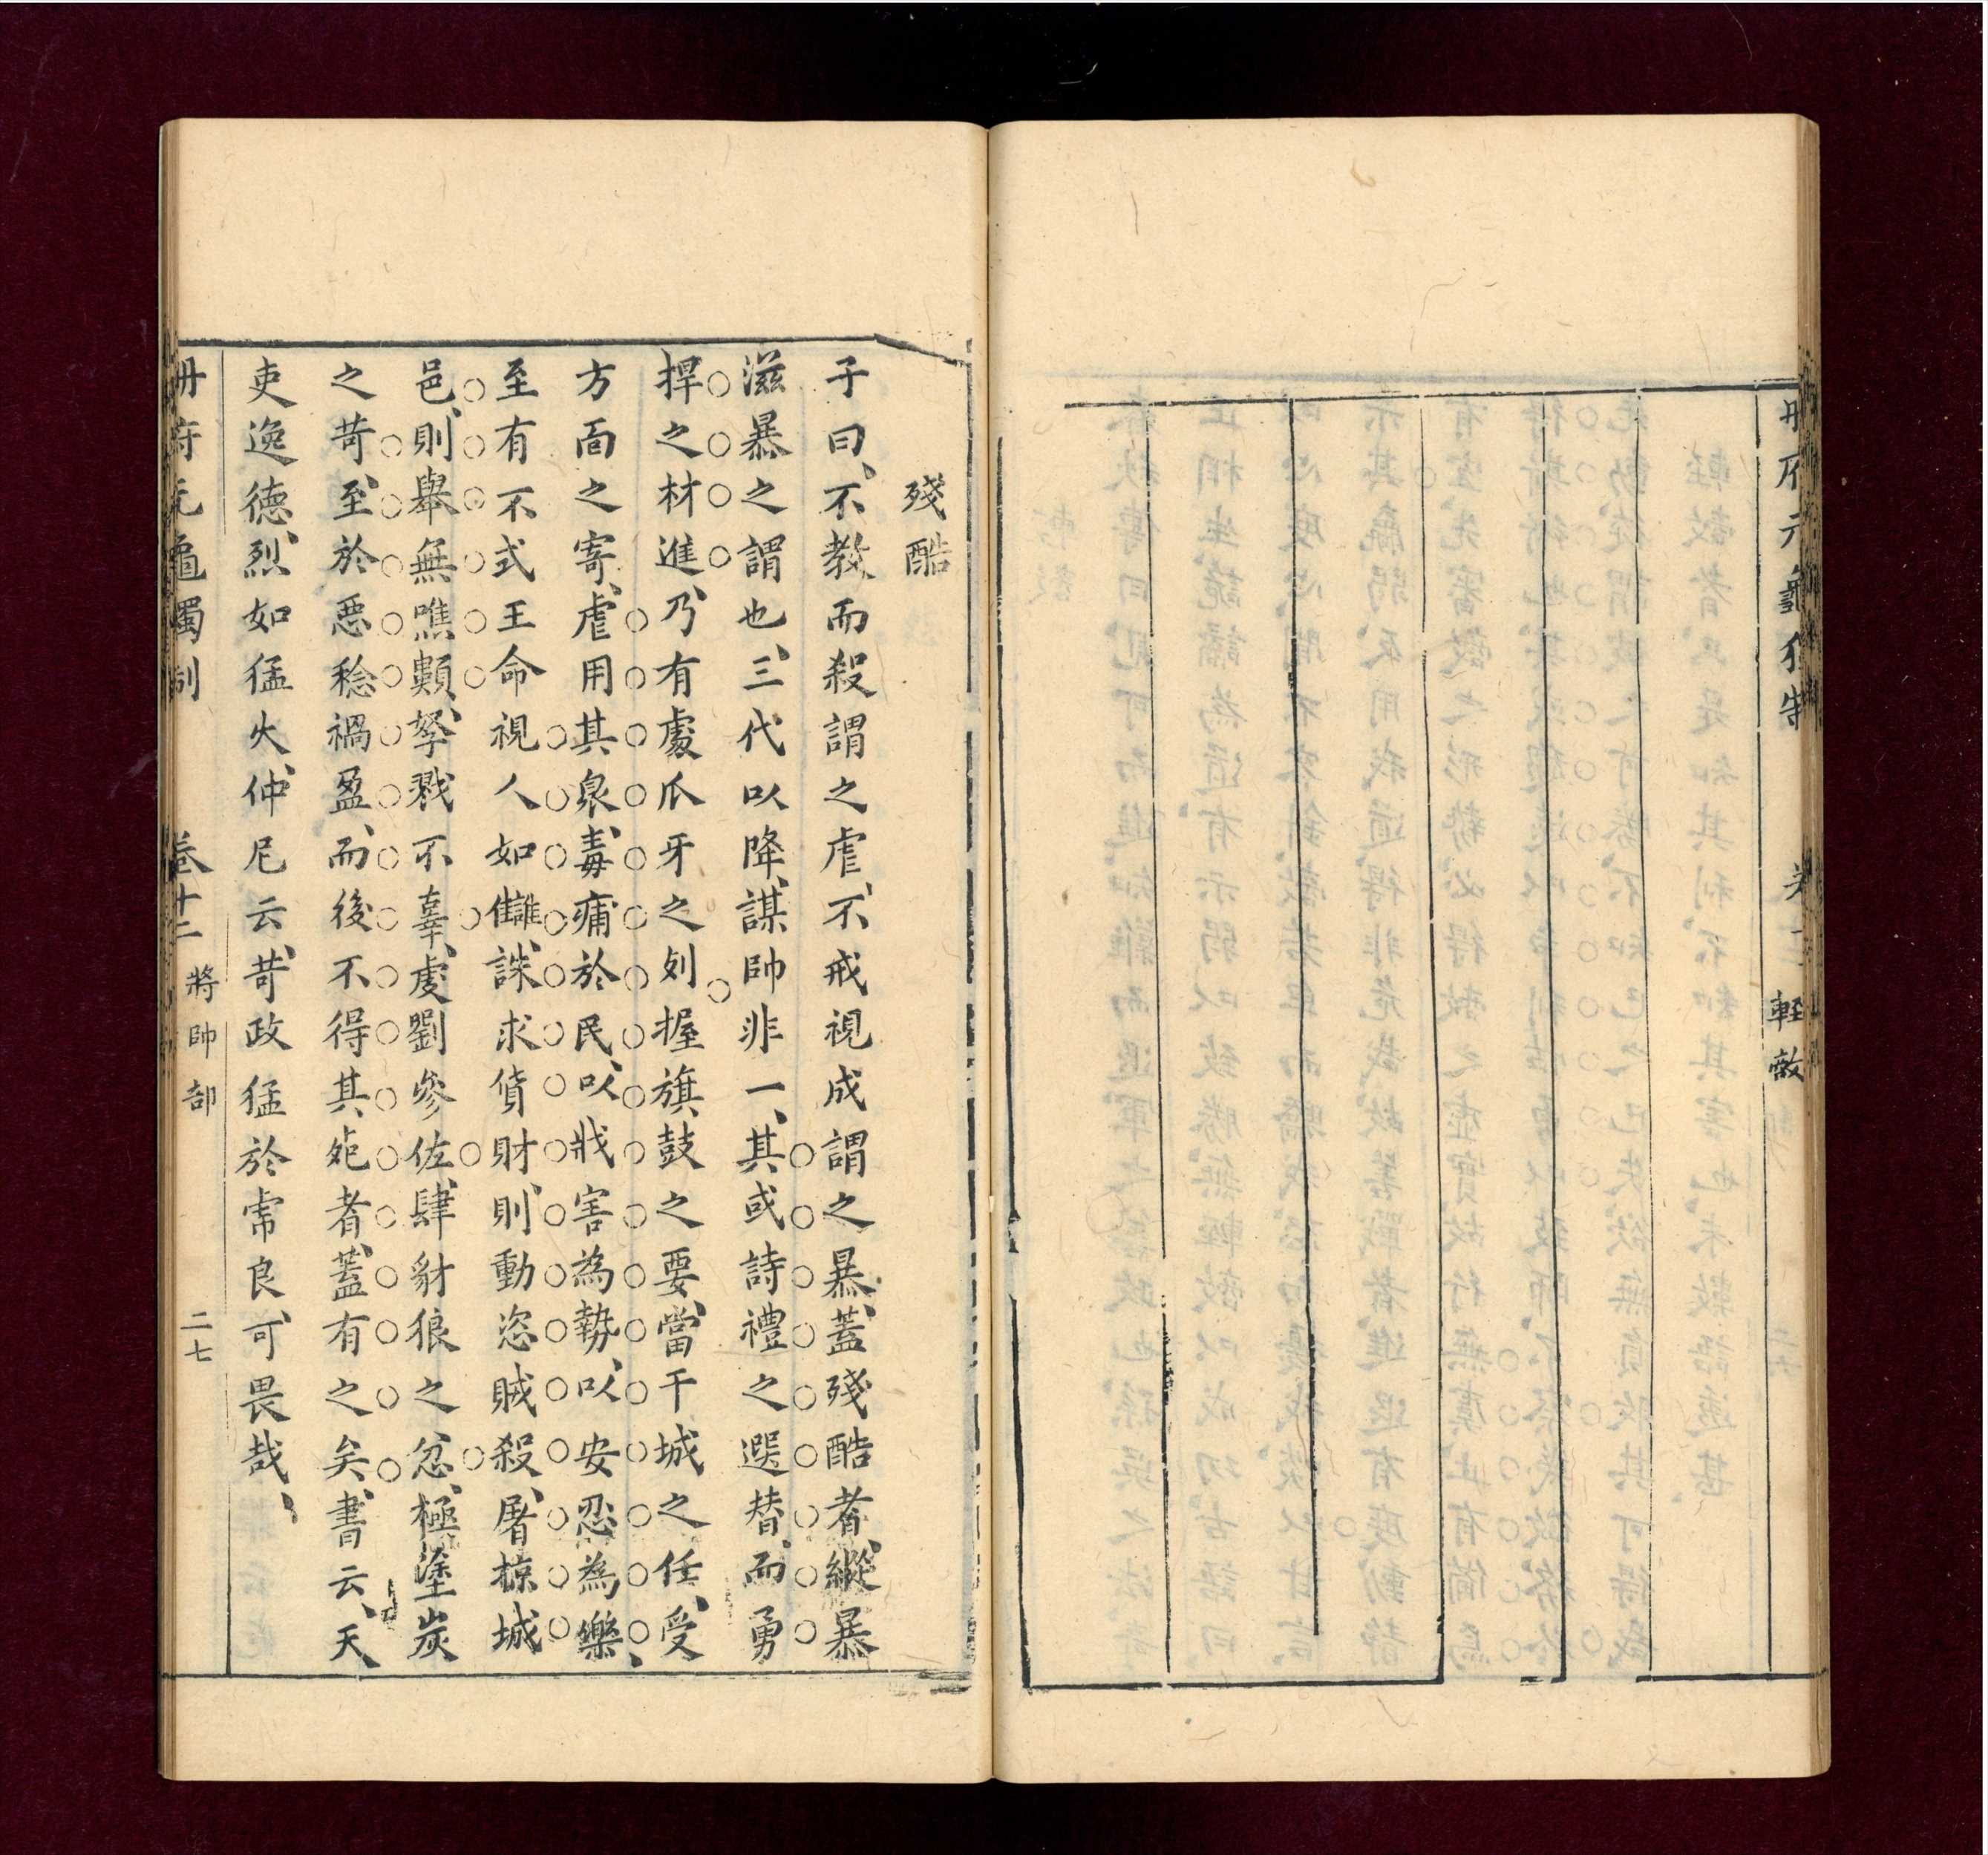 輕敵
殘酷
子曰、不教而殺謂之虐、不戒視成謂之暴、蓋殘酷者、縱暴
滋暴之謂也、三代以降、謀帥非一、其或詩禮之選替、而勇
捍之材進、乃有處爪牙之列握旗鼓之要、當干城之任、受
方面之寄、虐用其衆、毒痡於民、以戕害為勢、以安忍為樂、
至有不式王命視人如讎、誅求貨財、則動恣賊殺、屠掠城
邑、則舉無噍類、孥戮不辜、虔劉參佐、肆豺狼之忿、極塗炭
之苛、至於惡稔禍盈、而後不得其死者、蓋有之矣、書云、天
吏逸德、烈如猛火、仲尼云、苛政猛於虎、良可畏哉、
冊府元龜獨制 卷十二 將帥部 二七